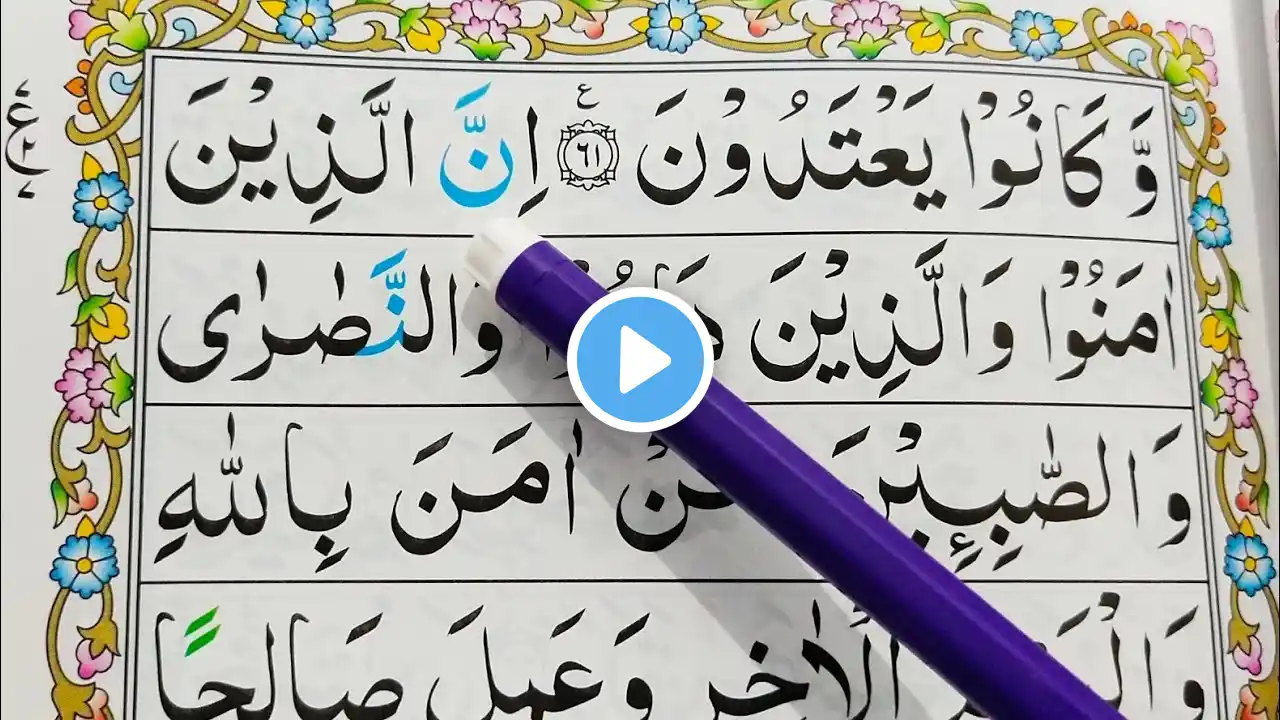 وَّ كَانُوْا يَعْتَدُوْنَ ۝٦١ ع اِنَّ الَّذِيْنَ
اٰمَنُوْا وَالَّذِيْنَ وَالنَّصٰرٰى
وَالصّٰبِـِٕيْنَ مَنْ اٰمَنَ بِاللّٰهِ
الْاٰخِرِ وَعَمِلَ صَالِحًا